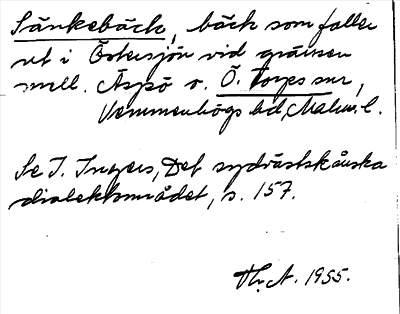 Sänkebäck, bäck som faller
ut i Östersjön vid gränsen
mell. Äspö o. Ö. Torps snr,
Vemmenhögs hd, Malm. l.
Se I. Ingers, Det sydvästskånska
dialektområdet, s. 157.
Th. A. 1955.